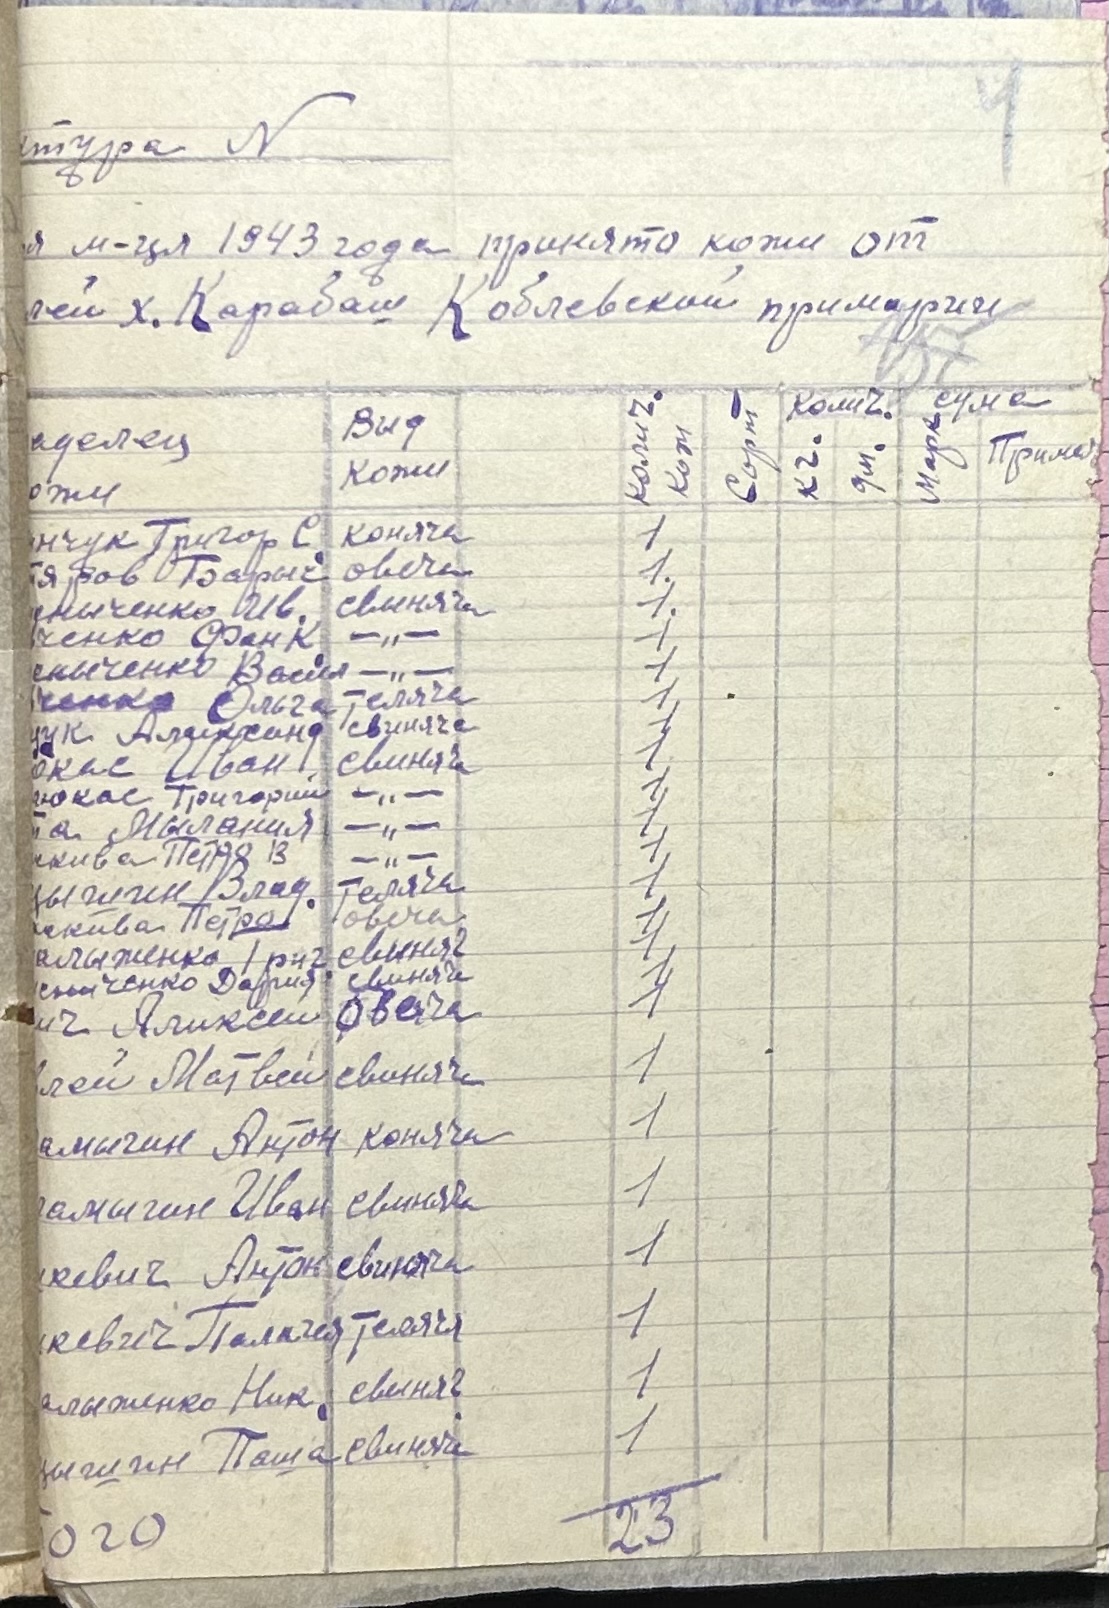 4
ктура N
я м-ця 1943 года принято кожи от
лей х. Карабаш Коблевской примарии
аделец Выд Колич. Сорт Колич. сума
ожи кожи кож кг. дм. Марк Примеч
нчук Григор С. коняча 1
тяров Борыс овеча 1.
еныченко Ив. свиняча 1.
ченко Фан К. —„— 1
еныченко Васил —„— 1
ченко Ольга теляча 1
чук Александ свиняча 1
окас Иван свиняча 1
люкас Григорий —„— 1
та Мылания —„— 1
кива Петра В —„— 1
цыгин Влад. теляча 1
кива Петра овеча 1
алыженко Григ свиняч 1
сниченко Дария свиняча 1
ич Алексей овеча 1
влей Матвей свиняча 1
амыгин Антон коняча 1
амыгин Иван свиняча 1
кевич Антон свиняча 1
кевич теляча 1
алыженко Ник. свиняч 1
цыгин Паша свиняча 1
того 23